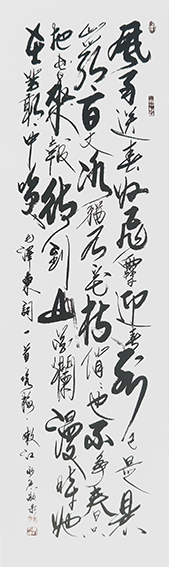 風雨送春归飛雪迎春到已是悬
崖百丈冰猶有花枝俏俏也不争春只
把春来報待到山花爛漫時她
在丛中笑 毛澤東詞一首咏梅